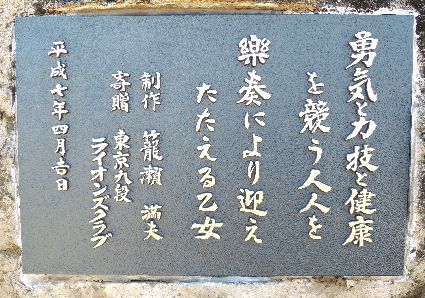 勇気と力技と健康
を競う人人を
樂奏により迎え
たたえる乙女
制作 籠瀬 満夫
寄贈 東京九段
ライオンズクラブ
平成七年四月吉日